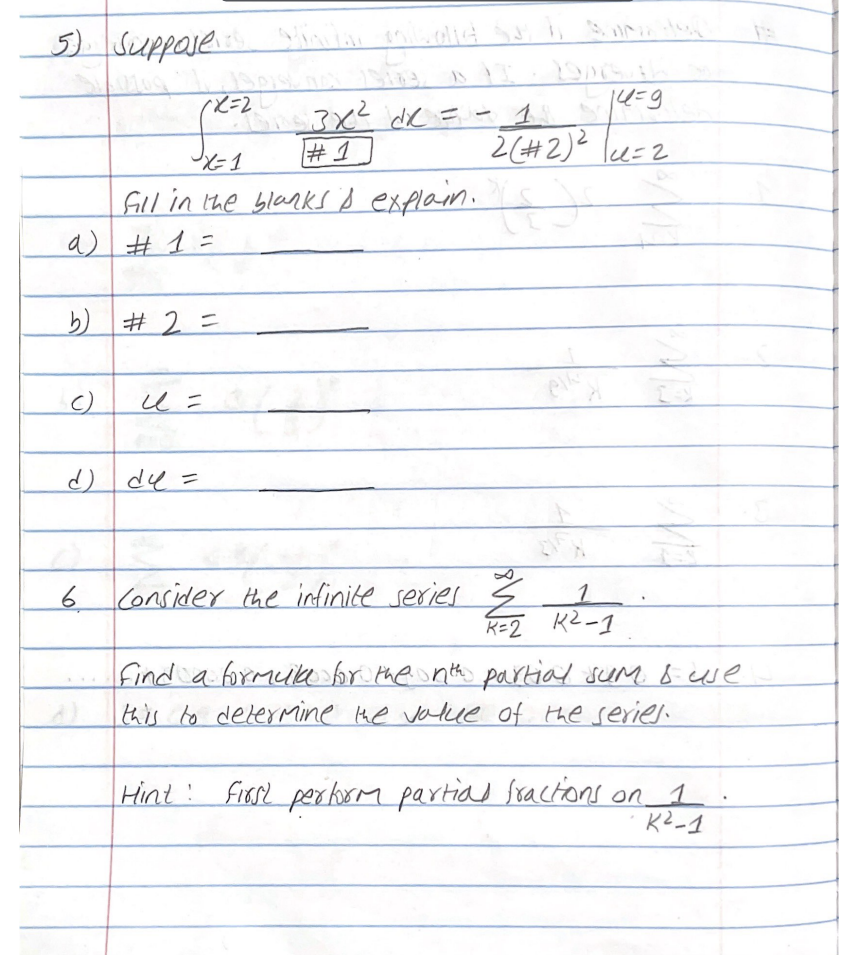 5) Suppose
∫ x=1 x=2 3x² / #1 dx = - 1 / 2(#2)² | u=2 u=9
fill in the blanks & explain.
a) # 1 = ____
b) # 2 = ____
c) u = ____
d) du = ____
6 Consider the infinite series ∞ Σ k=2 1 / k²-1 .
Find a formula for the nth partial sum & use
this to determine the value of the series.
Hint : First perform partial fractions on 1 / k²-1 .